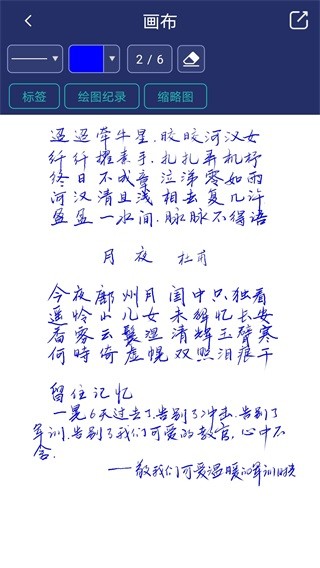 画布
2 / 6
标签 绘图纪录 缩略图
迢迢牵牛星,皎皎河汉女
纤纤擢素手,扎扎弄机杼
终日不成章 泣涕零如雨
河汉清且浅 相去复几许
盈盈一水间,脉脉不得语
月夜 杜甫
今夜鄜州月 闺中只独看
遥怜小儿女 未解忆长安
香雾云鬟湿 清辉玉臂寒
何時倚虚幌 双照泪痕干
留住记忆
一晃6天过去了,告别了冲击,告别了
军训,告别了我们可爱的教官,心中不
舍.
——敬我们可爱温暖的军训